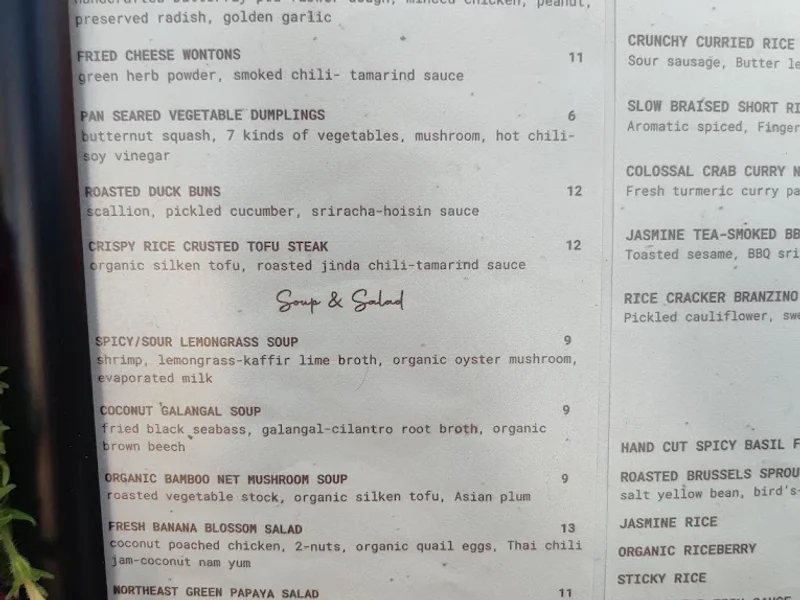 handcrafted butterfly pea flower dough, minced chicken, peanut,
preserved radish, golden garlic
FRIED CHEESE WONTONS 11
green herb powder, smoked chili- tamarind sauce
PAN SEARED VEGETABLE DUMPLINGS 6
butternut squash, 7 kinds of vegetables, mushroom, hot chili-
soy vinegar
ROASTED DUCK BUNS 12
scallion, pickled cucumber, sriracha-hoisin sauce
CRISPY RICE CRUSTED TOFU STEAK 12
organic silken tofu, roasted jinda chili-tamarind sauce
Soup & Salad
SPICY/SOUR LEMONGRASS SOUP 9
shrimp, lemongrass-kaffir lime broth, organic oyster mushroom,
evaporated milk
COCONUT GALANGAL SOUP 9
fried black seabass, galangal-cilantro root broth, organic
brown beech
ORGANIC BAMBOO NET MUSHROOM SOUP 9
roasted vegetable stock, organic silken tofu, Asian plum
FRESH BANANA BLOSSOM SALAD 13
coconut poached chicken, 2-nuts, organic quail eggs, Thai chili
jam-coconut nam yum
NORTHEAST GREEN PAPAYA SALAD 11
CRUNCHY CURRIED RICE
Sour sausage, Butter le
SLOW BRAISED SHORT RI
Aromatic spiced, Finger
COLOSSAL CRAB CURRY N
Fresh turmeric curry pa
JASMINE TEA-SMOKED BB
Toasted sesame, BBQ sri
RICE CRACKER BRANZINO
Pickled cauliflower, swe
HAND CUT SPICY BASIL F
ROASTED BRUSSELS SPROU
salt yellow bean, bird's-
JASMINE RICE
ORGANIC RICEBERRY
STICKY RICE